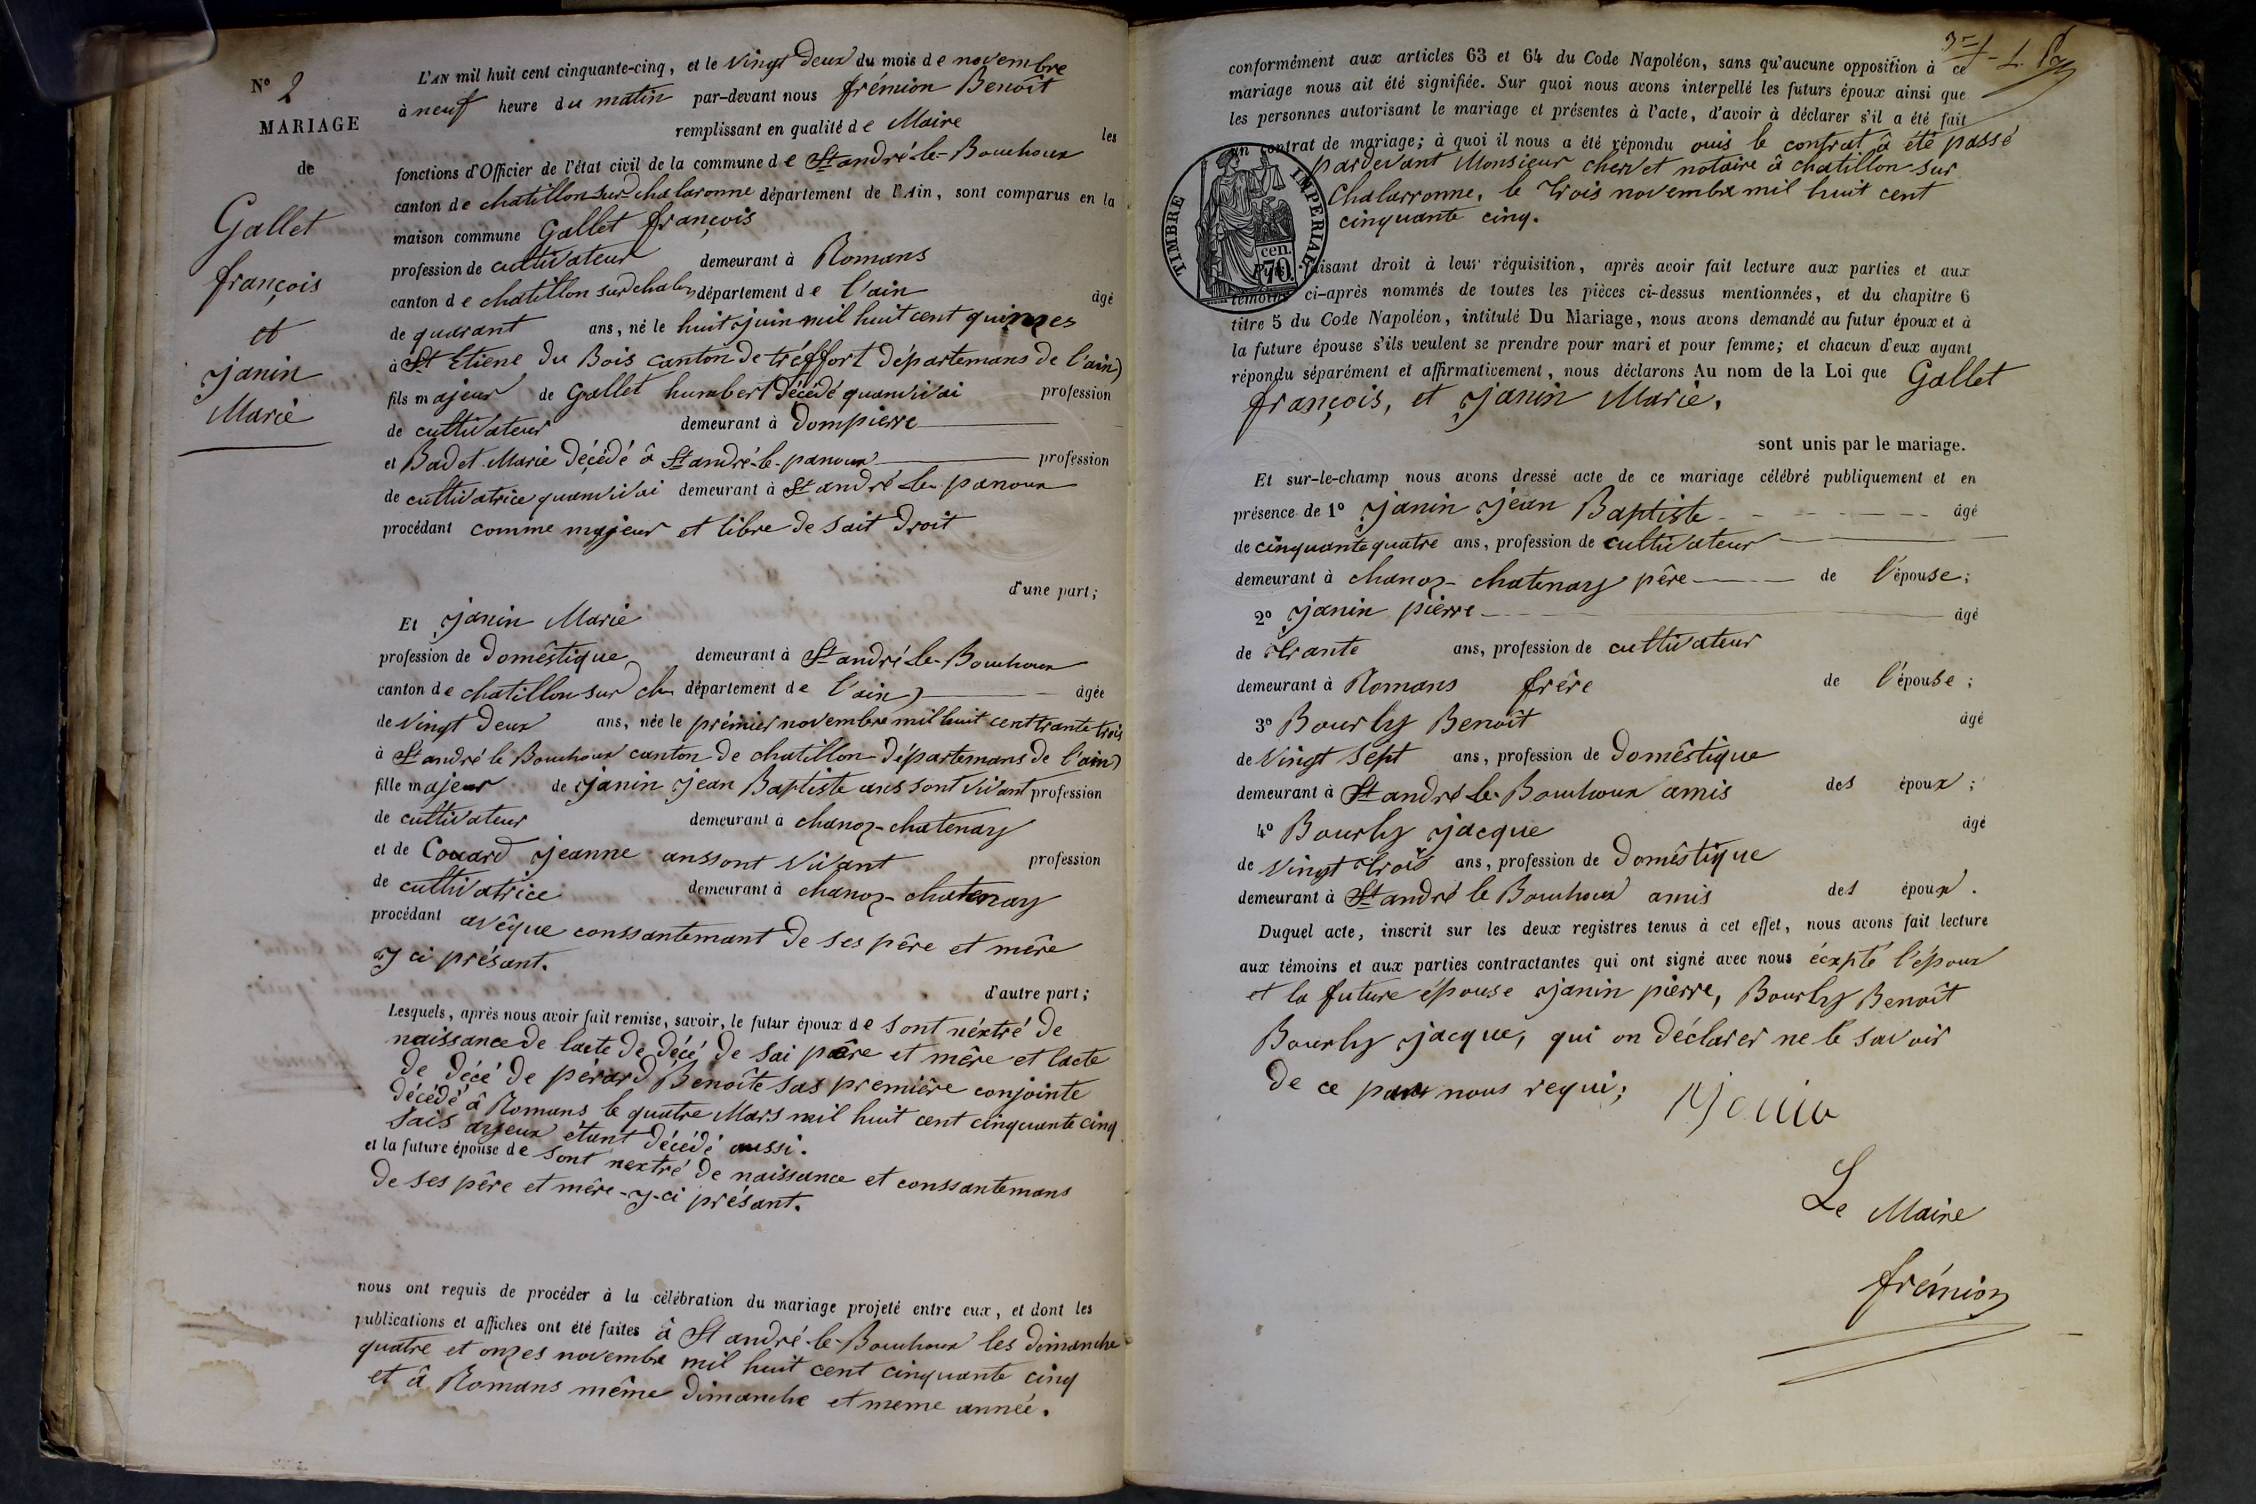 N° 2
MARIAGE
de
Gallet
françois
et
janin
Marie
L'AN mil huit cent cinquante-cinq, et le vingt deux du mois de novembre
à neuf heure du matin par-devant nous frémion Benoît
remplissant en qualité de Maire les
fonctions d'Officier de l'état civil de la commune de St andré-le-Bouchoux
canton de chatillon-sur-chalaronne département de l'Ain, sont comparus en la
maison commune Gallet françois
profession de cultivateur demeurant à Romans
canton de chatillon sur chalar département de l'ain âgé
de quarant ans, né le huit juin mil huit cent quinzes
à St Etiene du Bois canton de tréffort départemans de l'ain)
fils majeur de Gallet humbert décédé quanvivai profession
de cultivateur demeurant à Dompierre
et Badet Marie décédé â St andré-le-panoux profession
de cultivatrice quanvivai demeurant à St andré le panoux
procédant comme majeur et libre de sait droit
d'une part;
Et janin Marie
profession de domêstique demeurant à St andré le-Bouchoux
canton de chatillon sur ch département de l'ain) âgée
de vingt deux ans, née le prémier novembre mil huit cent trante trois
à St andré le Bouchoux canton de chatillon départemans de l'ain)
fille majeur de janin jean Baptiste ans sont vivant profession
de cultivateur demeurant à chanoz-chatenay
et de Couard jeanne anssont vivant profession
de cultivatrice demeurant à chanoz-chatenay
procédant avêque conssantemant de ses pêre et mêre
y ci présant.
d'autre part;
Lesquels, après nous avoir fait remise, savoir, le futur époux de sont néxtré de
naissance de lacte de décé de sai pêre et mêre et lacte
de décé de perard Benoîte sas première conjointe
décédé â Romans le quatre Mars mil huit cent cinquante cinq
sais ayeux étant décédé aussi.
et la future épouse de sont nextré de naissance et conssantemans
de ses pêre et mêre-y-ci présant.
nous ont requis de procéder à la célébration du mariage projeté entre eux, et dont les
publications et affiches ont été faites â St andré-le-Bouchoux les dimanche
quatre et onzes novembre mil huit cent cinquante cinq
et â Romans même dimanche et meme année.
conformément aux articles 63 et 64 du Code Napoléon, sans qu'aucune opposition à ce
mariage nous ait été signifiée. Sur quoi nous avons interpellé les futurs époux ainsi que
les personnes autorisant le mariage et présentes à l'acte, d'avoir à déclarer s'il a été fait
un contrat de mariage; à quoi il nous a été répondu ouis le contrat â été passé
pardevant Monsieur chervet notaire â chatillon sur
Chalarronne, le trois novembre mil huit cent
cinquante cinq.
TIMBRE IMPERIAL
70 cen.
Puis, faisant droit à leur réquisition, après avoir fait lecture aux parties et aux
témoins ci-après nommés de toutes les pièces ci-dessus mentionnées, et du chapitre 6
titre 5 du Code Napoléon, intitulé Du Mariage, nous avons demandé au futur époux et à
la future épouse s'ils veulent se prendre pour mari et pour femme; et chacun d'eux ayant
répondu séparément et affirmativement, nous déclarons Au nom de la Loi que Gallet
françois, et janin Marie,
sont unis par le mariage.
Et sur-le-champ nous avons dressé acte de ce mariage célébré publiquement et en
présence de 1° janin jean Baptiste âgé
de cinquante quatre ans, profession de cultivateur
demeurant à chanoz-chatenay pêre de l'épouse;
2° janin pierre âgé
de trante ans, profession de cultivateur
demeurant à Romans frêre de l'épouse;
3° Bourly Benoît âgé
de vingt sept ans, profession de domêstique
demeurant à St andré le-Bouchoux amis des époux;
4° Bourly jacque âgé
de vingt trois ans, profession de domêstique
demeurant à St andré le Bouchoux amis des époux.
Duquel acte, inscrit sur les deux registres tenus à cet effet, nous avons fait lecture
aux témoins et aux parties contractantes qui ont signé avec nous écxpté l'époux
et la future épouse janin pierre, Bourly Benoît
Bourly jacque, qui on déclarer ne le savoir
de ce par nous requi;
Le Maire
frémion